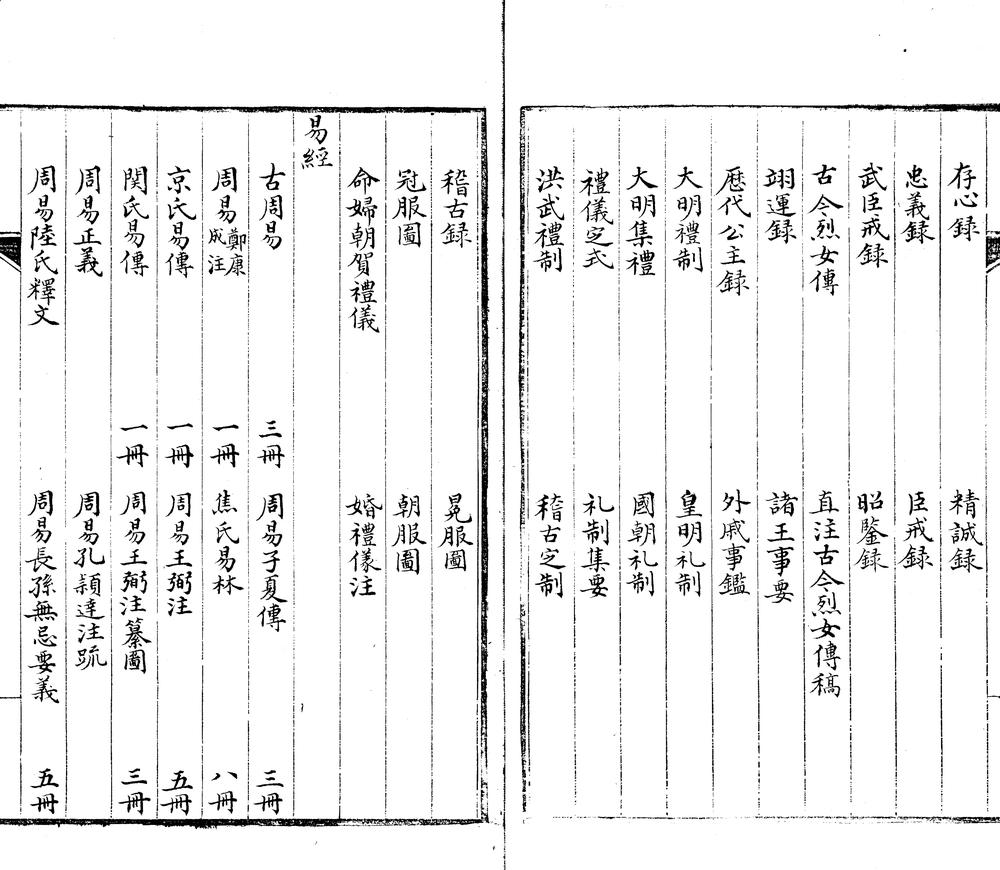 存心録　精誠録
忠義録　臣戒録
武臣戒録　昭鑒録
古今烈女傳　直注古今烈女傳稿
翊運録　諸王事要
歴代公主録　外戚事鑑
大明禮制　皇明礼制
大明集禮　國朝礼制
禮儀定式　礼制集要
洪武禮制　稽古定制
稽古録　冕服圖
冠服圖　朝服圖
命婦朝賀禮儀　婚禮儀注
易經
古周易　三冊　周易子夏傳　三冊
周易鄭康成注　一冊　焦氏易林　八冊
京氏易傳　一冊　周易王弼注　五冊
関氏易傳　一冊　周易王弼注纂圖　三冊
周易正義　周易孔穎達注疏
周易陸氏釋文　周易長孫無忌要義　五冊